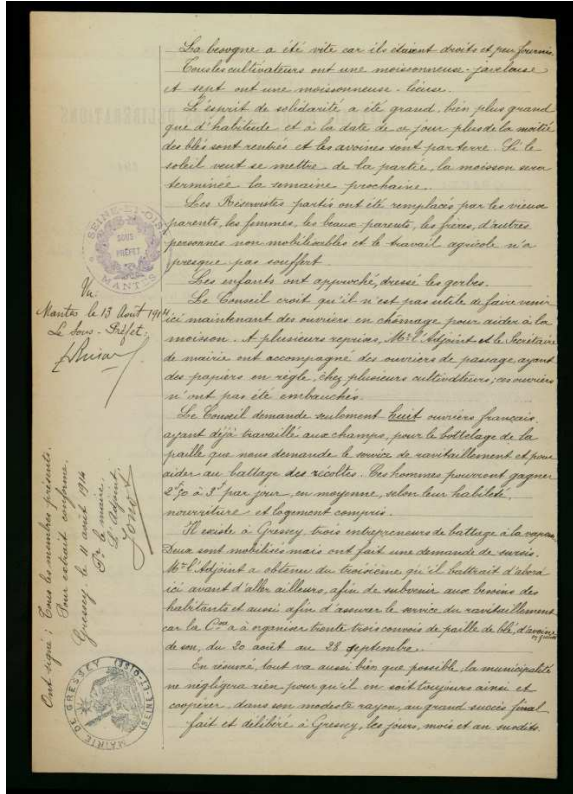 La besogne a été vite car ils étaient droits et peu fournis.
Tous les cultivateurs ont une moissonneuse-javeleuse
et sept ont une moissonneuse-lieuse.
L'esprit de solidarité a été grand, bien plus grand
que d'habitude et à la date de ce jour plus de la moitié
des blés sont rentrés et les avoines sont par terre. Si le
soleil veut se mettre de la partie, la moisson sera
terminée la semaine prochaine.
Les Réservistes partis ont été remplacés par les vieux
parents, les femmes, les beaux-parents, les frères, d'autres
personnes non mobilisables et le travail agricole n'a
presque pas souffert.
Les enfants ont approché, dressé les gerbes.
Le Conseil croit qu'il n'est pas utile de faire venir
ici maintenant des ouvriers en chômage pour aider à la
moisson. A plusieurs reprises, Mr l'Adjoint et le Secrétaire
de mairie ont accompagné des ouvriers de passage ayant
des papiers en règle, chez plusieurs cultivateurs; ces ouvriers
n'ont pas été embauchés.
Le Conseil demande seulement huit ouvriers français,
ayant déjà travaillé aux champs, pour le bottelage de la
paille que nous demande le service de ravitaillement et pour
aider au battage des récoltes. Ces hommes pourront gagner
2f50 à 3f par jour, en moyenne, selon leur habileté,
nourriture et logement compris.
Il existe à Gressey, trois entrepreneurs de battage à la vapeur.
Deux sont mobilisés mais ont fait une demande de sursis.
Mr l'Adjoint a obtenu du troisième qu'il battrait d'abord
ici avant d'aller ailleurs, afin de subvenir aux besoins des
habitants et aussi afin d'assurer le service du ravitaillement
car la Cne a à organiser trente trois convois de paille de blé, d'avoine
de son, du 20 août au 28 septembre.
En résumé, tout va aussi bien que possible, la municipalité
ne négligera rien pour qu'il en soit toujours ainsi et
coopérer, dans son modeste rayon, au grand succès final.
fait et délibéré à Gressey, les jours, mois et an susdits.
SEINE-ET-OISE
SOUS-PRÉFET
MANTES
Vu
Mantes le 13 Août 1914
Le Sous-Préfet,
Ont signé: Tous les membres présents.
Pour extrait conforme.
Gressey le 11 août 1914
Pr le maire.
L'Adjoint,
MAIRIE DE GRESSEY (SEINE-ET-OISE)